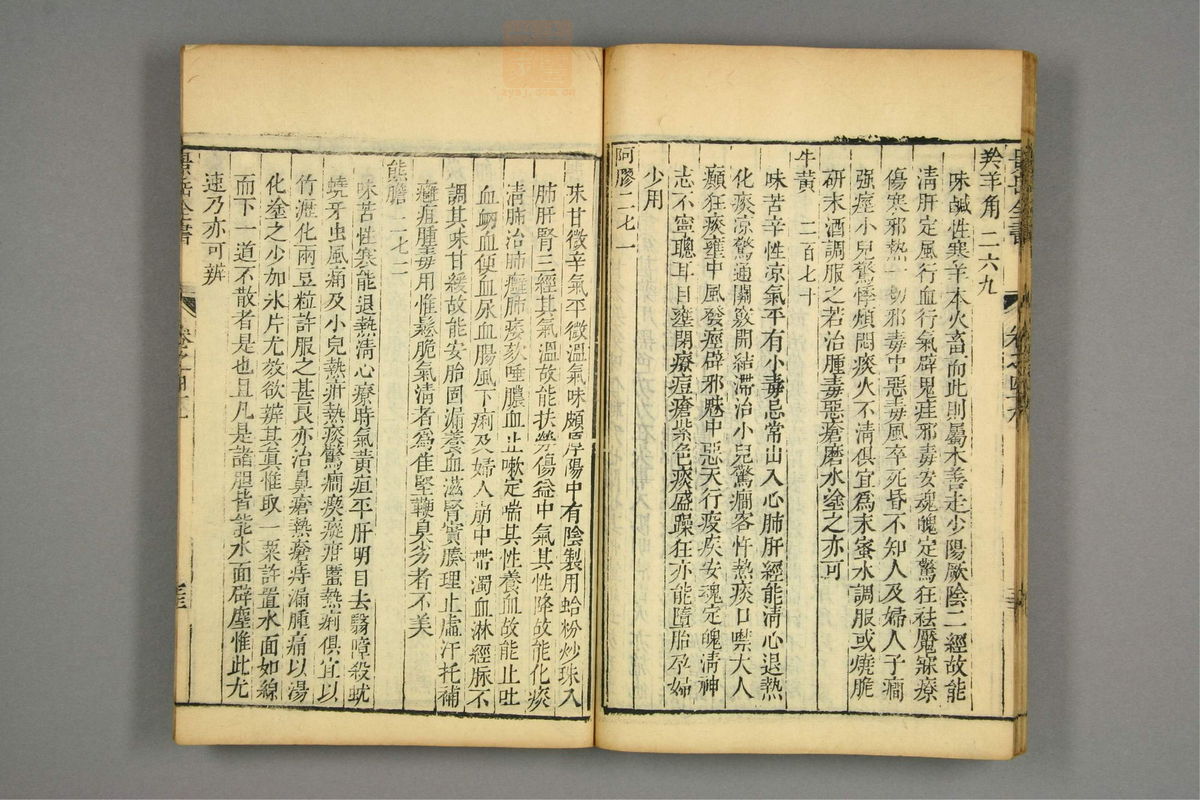 景岳全書
卷之四十九
羚羊角 二六九
味鹹性寒羊本火畜而此則屬木善走少陽厥陰二經故能
清肝定風行血行氣辟鬼疰邪毒安魂魄定驚狂祛魘寐療
傷寒邪熱一切邪毒中惡毒風卒死昏不知人及婦人子癇
强痙小兒驚悸煩悶痰火不清俱宜爲末蜜水調服或燒脆
研末酒調服之若治腫毒惡瘡磨水塗之亦可
牛黃 二百七十
味苦辛性凉氣平有小毒忌常山入心肺肝經能清心退熱
化痰凉驚通關竅開結滯治小兒驚癇客忤熱痰口噤大人
癲狂痰壅中風發痙辟邪魅中惡天行疫疾安魂定魄清神
志不寧聰耳目壅閉療痘瘡紫色痰盛躁狂亦能墮胎孕婦
少用
阿膠 二七一
味甘微辛氣平微溫氣味頗厚陽中有陰製用蛤粉炒珠入
肺肝腎三經其氣溫故能扶勞傷益中氣其性降故能化痰
清肺治肺癰肺痿欬唾膿血止嗽定喘其性養血故能止吐
血衂血便血尿血腸風下痢及婦人崩中帶濁血淋經脉不
調其味甘緩故能安胎固漏養血滋腎實腠理止虛汗托補
癰疽腫毒用惟鬆脆氣清者爲佳堅鞕臭劣者不美
熊膽 二七二
味苦性寒能退熱清心療時氣黃疸平肝明目去翳障殺蚘
蟯牙虫風痛及小兒熱疳熱痰驚癇瘈瘲疳䘌熱痢俱宜以
竹瀝化兩豆粒許服之甚良亦治鼻瘡熱瘡痔漏腫痛以湯
化塗之少加氷片尤效欲辨其眞惟取一粟許置水面如線
而下一道不散者是也且凡是諸膽者能水面辟塵惟此尤
速乃亦可辨
景岳全書
卷之四十九